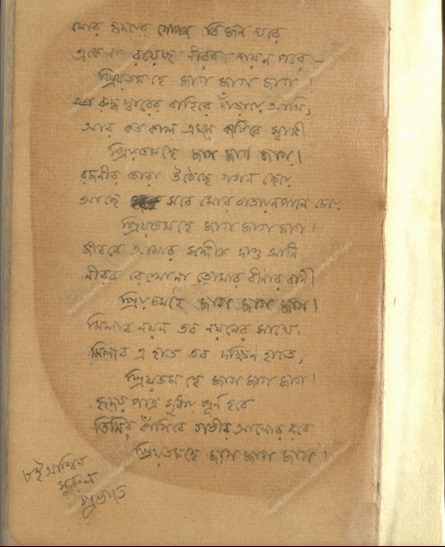 মোর হৃদয়ের গোপন বিজন ঘরে
একেলা রয়েছ নীরব শয়ন পরে—
প্রিয়তম হে জাগ জাগ জাগ।
রুদ্ধ দ্বারের বাহিরে দাঁড়ায়ে আমি,
আর কতকাল এমনে কাটিবে স্বামী
প্রিয়তম হে জাগ জাগ জাগ।
রজনীর তারা উঠেছে গগন ছেয়ে
আছে সবে মোর বাতায়নপানে চেয়ে
প্রিয়তম হে জাগ জাগ জাগ।
জীবনে আমার সঙ্গীত দাও আনি
নীরব রেখোনা তোমার বীনার বানী
প্রিয়তম হে জাগ জাগ জাগ।
মিলাব নয়ন তব নয়নের সাথে
মিলাব এ হাত তব দক্ষিন হাতে,
প্রিয়তম হে জাগ জাগ জাগ।
হৃদয় পাত্র সুধায় পূর্ন হবে
তিমির কাঁপিবে গভীর আলোর রবে
প্রিয়তম হে জাগ জাগ জাগ।
৮ই আশ্বিন
সুরুল
প্রভাতে